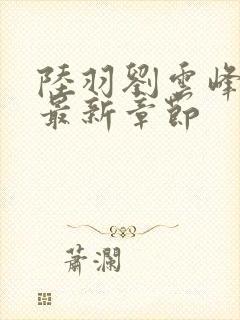 陸羽劉雲峰
最新章節
蕭瀾